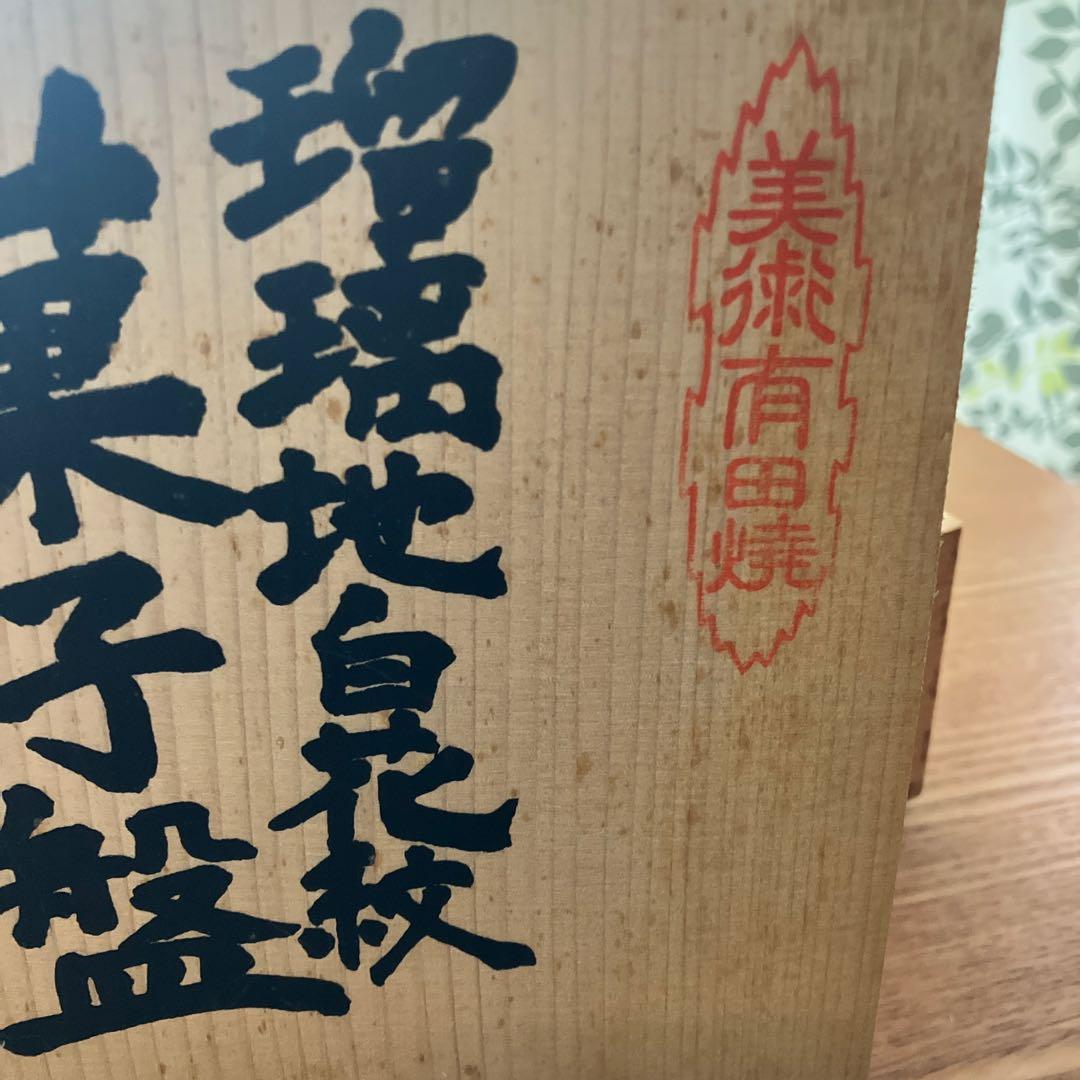 美術有田焼
瑠璃地白花紋
菓子盤